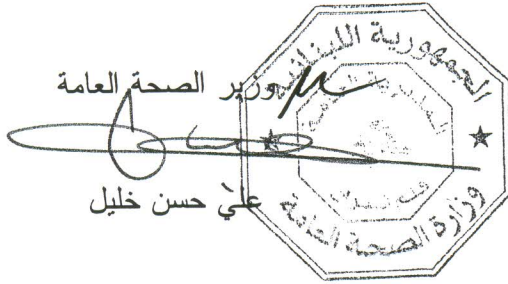 وزير الصحة العامة
علي حسن خليل
الجمهورية اللبنانية
وزارة الصحة العامة